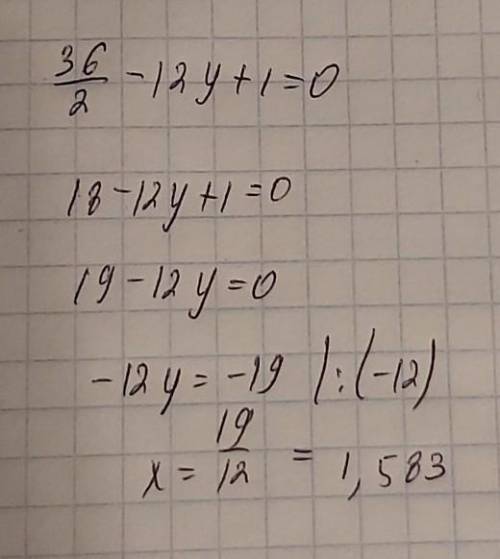 36/2 - 12y + 1 = 0
18 - 12y + 1 = 0
19 - 12y = 0
-12y = -19 | : (-12)
x = 19/12 = 1,583